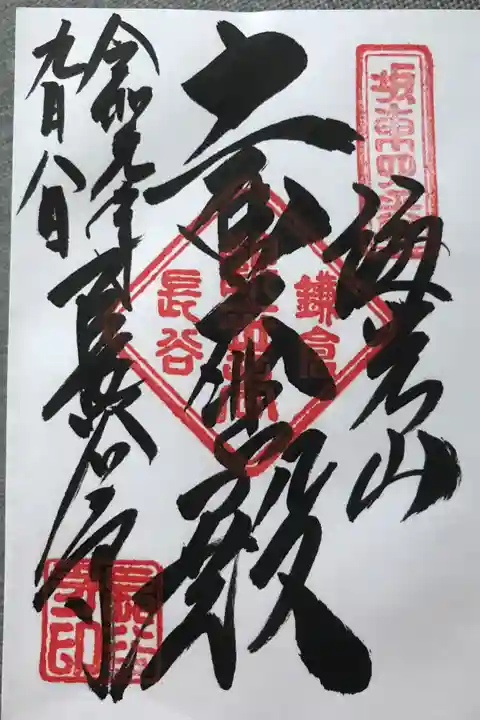 海光山
十一面大悲殿
鎌倉
長谷
長谷寺
令和元年
九月八日
長谷寺印